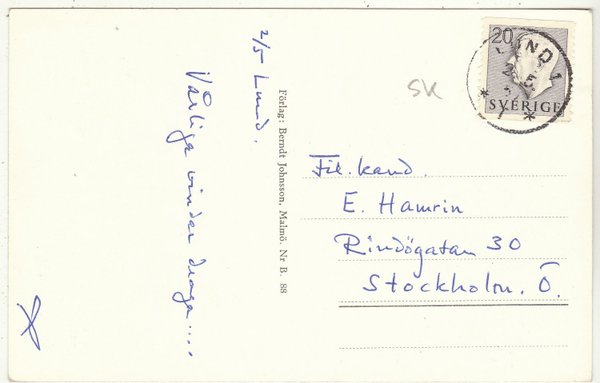 2/5 Lund.
Vårliga vindar draga....
Förlag: Berndt Johnsson, Malmö. Nr B. 88
SK
20
SVERIGE
LUND 1
Fil. kand.
E. Hamrin
Rindögatan 30
Stockholm. Ö.